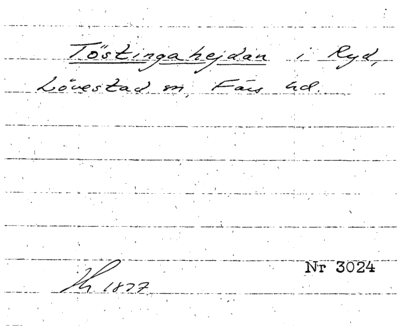 Töstingahejdan i Ryd,
Lövestad sn, Färs hd.
Nr 3024
Hh 1827